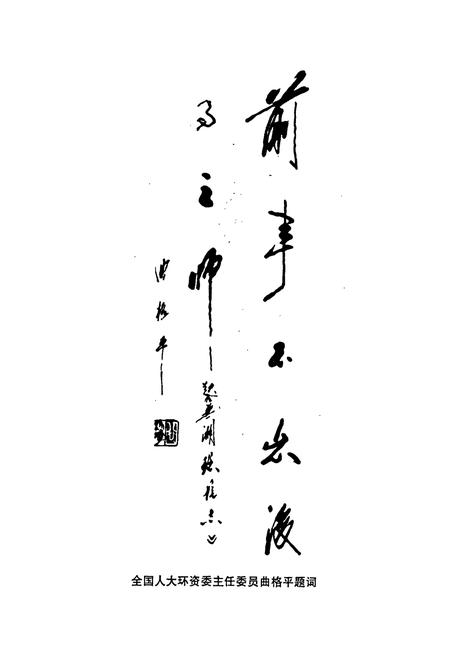 前事不忘後
事之师——题《芜湖环保志》
曲格平
全国人大环资委主任委员曲格平题词